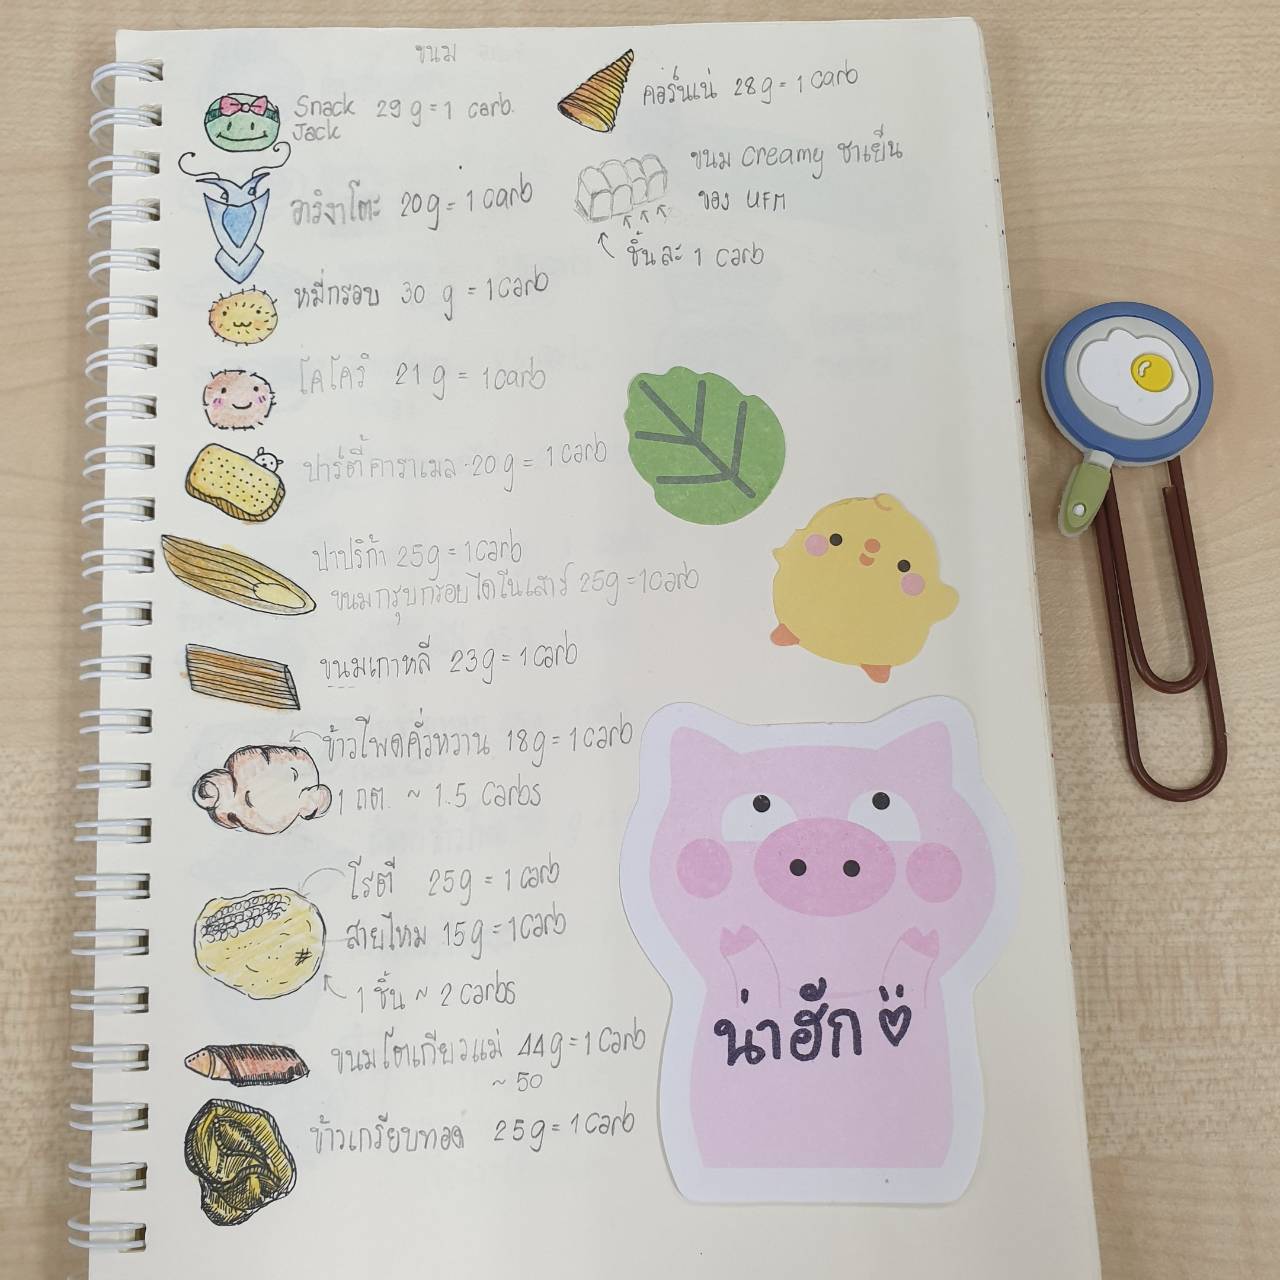 ขนม
Snack 29 g = 1 carb.
Jack
อาริงาโตะ 20 g = 1 carb
หมี่กรอบ 30 g = 1 carb
โคโคริ 21 g = 1 carb
ปาร์ตี้คาราเมล 20 g = 1 carb
ปาปริก้า 25 g = 1 carb
ขนมกรุบกรอบไดโนเสาร์ 25 g = 1 carb
ขนมเกาหลี 23 g = 1 carb
ข้าวโพดคั่วหวาน 18 g = 1 carb
1 ถต. ~ 1.5 carbs
โรตี 25 g = 1 carb
สายไหม 15 g = 1 carb
1 ชิ้น ~ 2 carbs
ขนมโตเกียวแม่ 44 g = 1 carb
~ 50
ข้าวเกรียบทอด 25 g = 1 carb
คอร์นเน่ 28 g = 1 carb
ขนม creamy ชาเย็น
ของ UFM
ชิ้นละ 1 carb
น่าฮัก